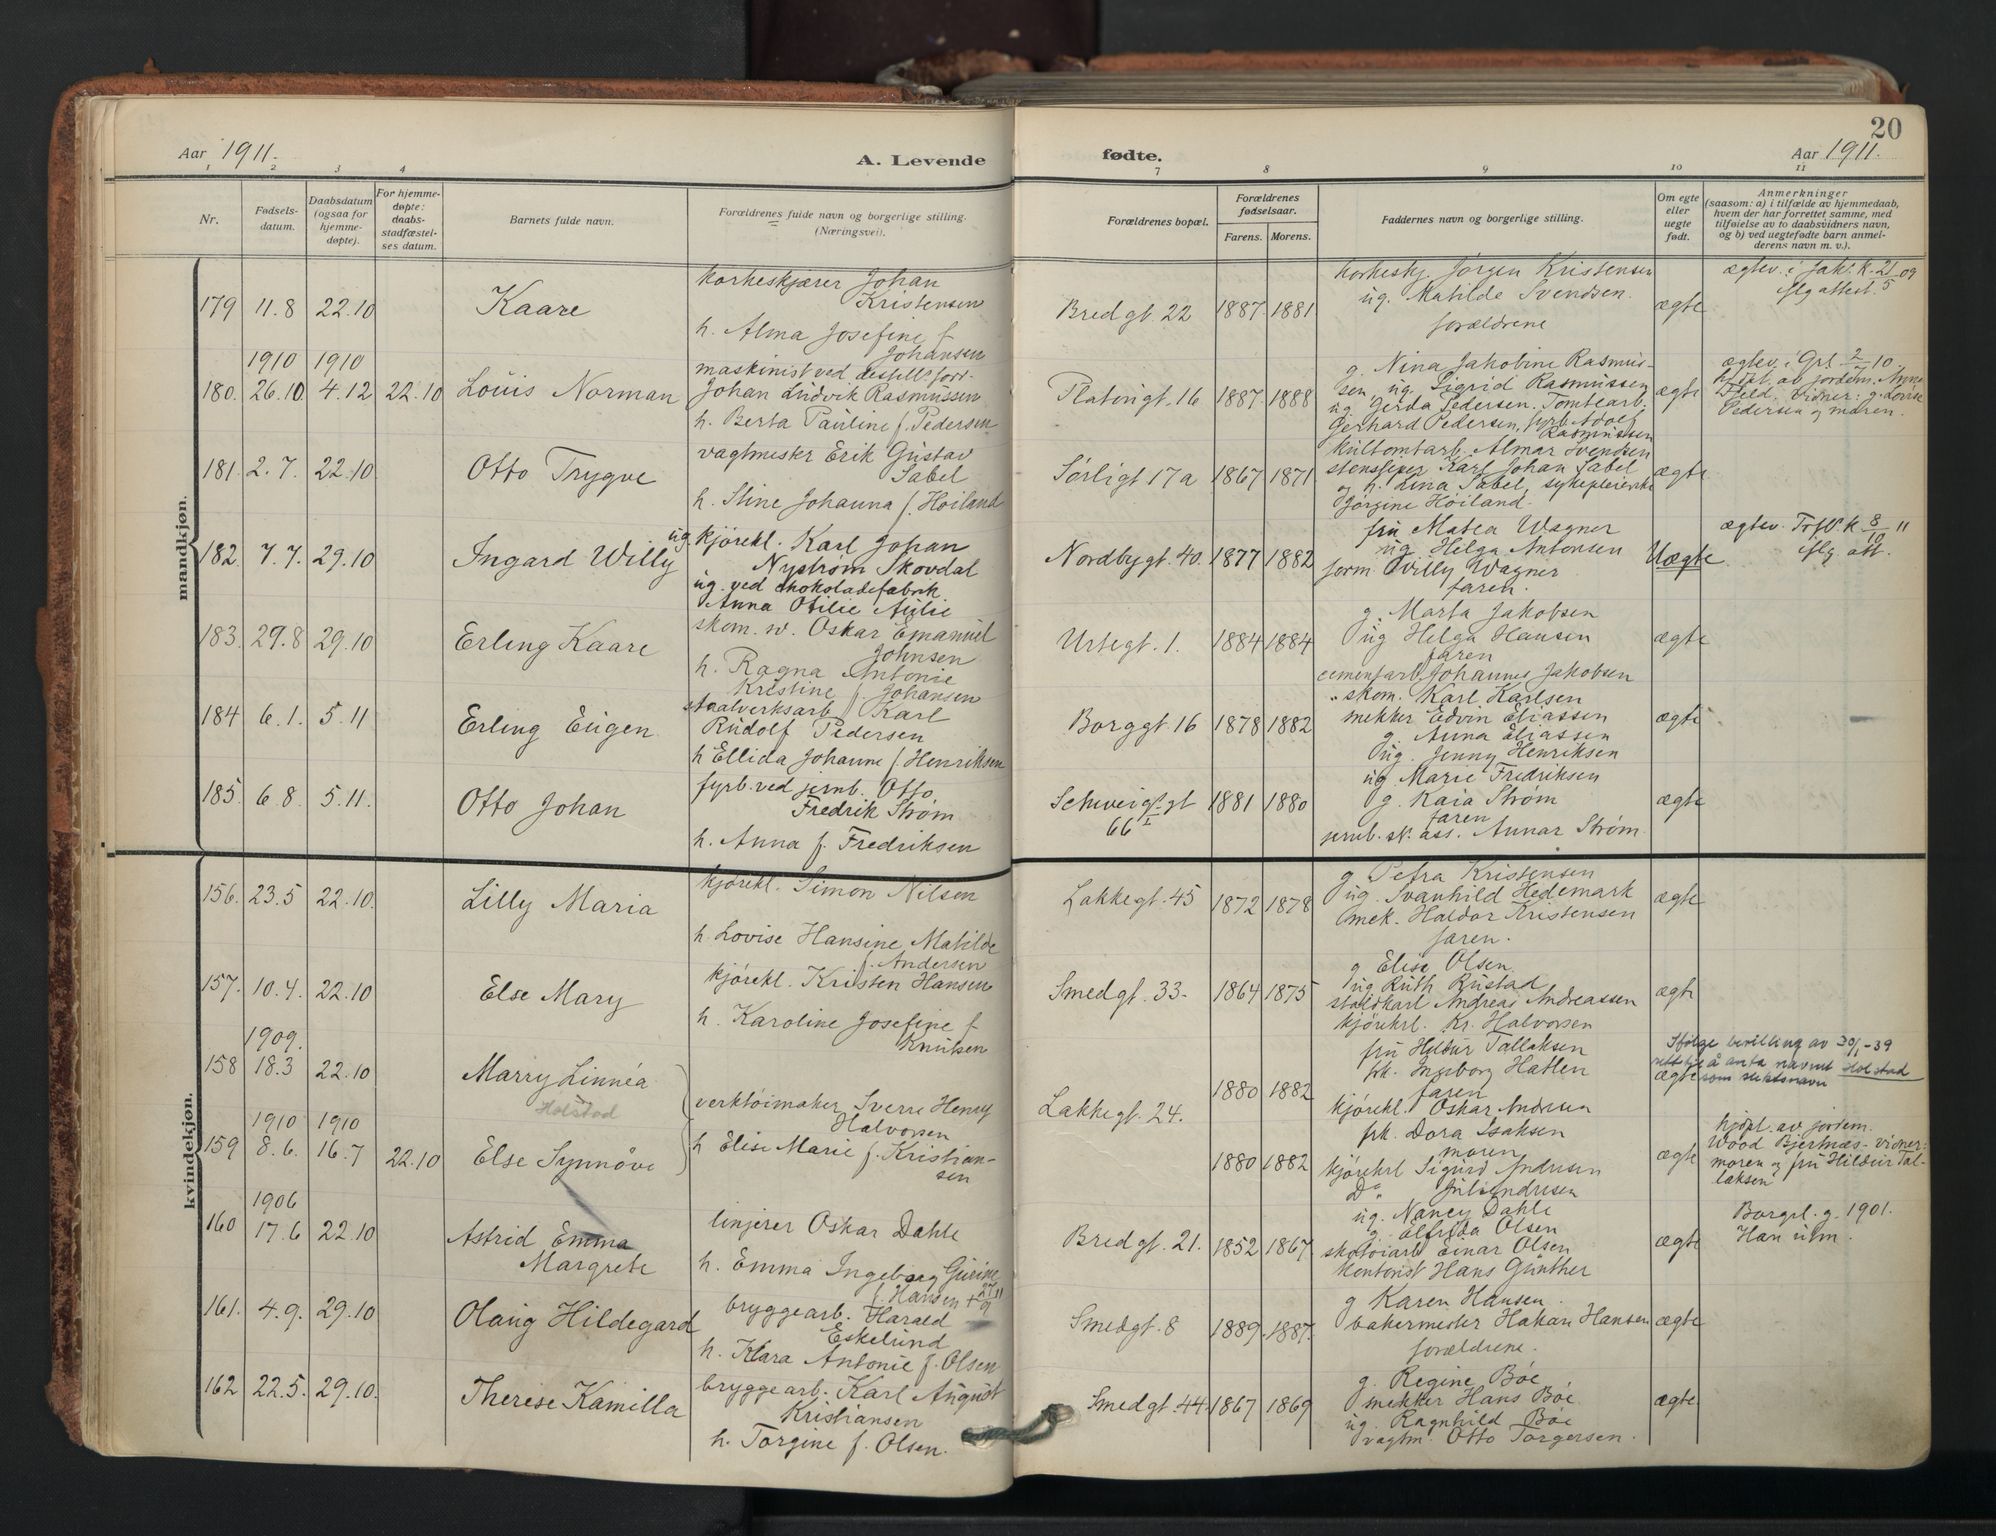 20
Aar 1911.
A. Levende
fødte.
Aar 1911.
1 2 3 4
7 8 9 10 11
Nr.
Fødsels-
datum.
Daabsdatum
(ogsaa for
hjemme-
døpte).
For hjemme-
døpte:
daabs-
stadfæstel-
ses datum.
Barnets fulde navn.
Forældrenes fulde navn og borgerlige stilling.
(Næringsvei).
Forældrenes bopæl.
Forældrenes
fødselsaar.
Farens. Morens.
Faddernes navn og borgerlige stilling.
Om egte
eller
uegte
født.
Anmerkninger
(saasom: a) i tilfælde av hjemmedaab,
hvem der har forrettet samme, med
tilføielse av to daabsvidners navn,
og b) ved uegtefødte barn anmel-
derens navn m. v.).
mandkjøn.
179 11.8 22.10 Kaare
korkeskjærer Johan
Kristensen
h. Alma Josefine f.
Johansen
Bredgt. 22 1887. 1881
korkeskj. Jørgen Kristensen
ug. Matilde Svendsen.
forældrene
ægte
ægtev. i Jak. K. 21/5 09
iflg attest.
1910 1910
180. 26.10 4.12 22.10 Louis Norman
maskinist ved
Johan Ludvik Rasmussen
h. Berta Pauline f. Pedersen
Platingt. 16 1887. 1888
g. Nina Jakobine Rasmus-
sen ug. Sigrid Rasmussen
ug Gerda Pedersen. Tomtearb.
Gerhard Pedersen, fyrb. Adolf
Rasmussen
ægte
ægtev. i Grl. 2/ 10.
av jordem. Anna
vidner: g. Lovise
Pedersen og moren.
181. 2.7. 22.10 Otto Trygve
vagtmester Erik Gustav
Sabel
h. Stine Johanna f. Høiland
Sørligt 17a 1867 1871
kultomtarb. Almar Svendsen
stensliper Karl Johan Sabel
og h. Lina Sabel, sykepleierske
Jørgine Høiland.
ægte
182. 7.7. 29.10 Ingard Willy
ug. kjørekl. Karl Johan
Nystrøm Skovdal
ug. ved chokoladefabrik
Anna Otilie Aulie
Nordbygt. 40. 1877 1882
fru Matea Wagner
ug. Helga Antonsen
form. Willy Wagner
faren.
Uægte
ægtev. Trfb K 8/10 11
iflg. att.
183. 29.8 29.10 Erling Kaare
skom. sv. Oskar Emanuel
Johnsen
h. Ragna Antonie
Kristine f. Johansen
Urtegt. 1. 1884 1884
g. Marta Jakobsen
ug Helga Hansen
faren
cementarb. Johannes Jakobsen
skom. Karl Karlsen
ægte
184 6.1. 5.11 Erling Eugen
staalverksarb. Karl
Rudolf Pedersen
h Ellida Johanne f. Henriksen
Borggt. 16 1878 1882
mekker Edvin Eliassen
g. Anna Eliassen
ug. Jenny Henriksen
ægte
185. 6.8. 5.11. Otto Johan
fyrb. ved jernb. Otto
Fredrik Strøm
h. Anna f. Fredriksen
Schweigsgt
66 I
1881 1880
ug Marie Fredriksen
g. Kaia Strøm
faren
jernb. sk. ass. Annar Strøm.
ægte
kvindekjøn.
156. 23.5 22.10. Lilly Maria
kjørekl. Simon Nilsen
h. Lovise Hansine Matilde
f. Andersen
Lakkegt. 45 1872 1878
g Petra Kristensen
ug. Svanhild Hedemark
mek. Haldor Kristensen
faren.
ægte
157. 10.4. 22.10 Else Mary
kjørekl. Kristen Hansen
h. Karoline Josefine f.
Knutsen
Smedgt. 33. 1864 1875
g Elise Olsen.
ug Ruth Rustad
staldkarl Andreas Andreassen
kjørekrl. Kr. Halvorsen
ægte
1909.
158 18.3 22.10 Marry Linnéa
Holstad
verktøimaker Sverre Henry
Halvorsen
h Elise Marie f. Kristian-
sen
Lakkegt. 24.
1880 1882
fru Hildur Tallaksen
frk. Ingborg Hatlen
faren
kjørekl. Oskar Andresen
ægte
Ifølge bevilling av 30/1-39
rett til å anta navnet Holstad
som slektsnavn
1910 1910
159 8.6. 16.7 22.10 Else Synnøve
1880 1882
frk. Dora Isaksen
moren
kjørekrl Sigurd Andresen
Do Juliandresen
ægte
hjdpt. av jordem.
Wood Bjertnæs. vidner:
moren og fru Hildur Tal-
laksen
1906
160 17.6 22.10 Astrid Emma
Margrete
linjerer Oskar Dahle
h. Emma Ingeborg Gurine
f. Hansen + 27/9 11
Bredgt. 21. 1852 1867
ug. Nancy Dahle
g. Elfrida Olsen
skotøiarb Einar Olsen
kontorist Hans Günther
ægte
Borgrl. g. 1901.
Han utm.
161. 4.9. 29.10 Olaug Hildegard
bryggearb. Harald
Eskelund
h. Klara Antonie f. Olsen
Smedgt. 8 1889. 1887.
g Karen Hansen.
bakermester Hakan Hansen
forældrene.
ægte
162 22.5. 29.10. Therese Kamilla
bryggearb. Karl August
Kristiansen
h. Torgine f. Olsen.
Smedgt. 44. 1867 1869
g. Regine Bøe
mekker Hans Bøe
ug. Ragnhild Bøe
vagtm. Otto Torgersen.
ægte